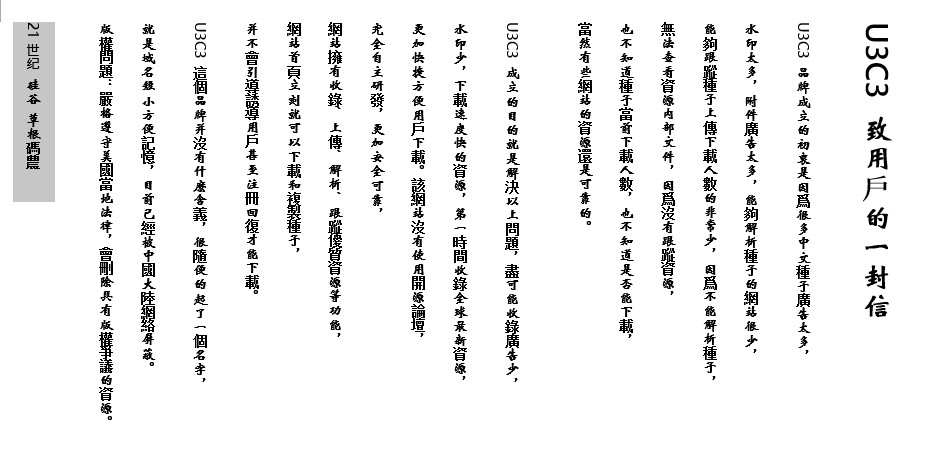 U3C3 致用戶的一封信
U3C3 品牌成立的初衷是因爲很多中文種子廣告太多，
水印太多，附件廣告太多，能夠解析種子的網站很少，
能夠跟蹤種子上傳下載人數的非常少，因爲不能解析種子，
無法查看資源内部文件，因爲沒有跟蹤資源，
也不知道種子當前下載人數，也不知道是否能下載，
當然有些網站的資源還是可靠的。
U3C3 成立的目的就是解決以上問題，盡可能收錄廣告少，
水印少，下載速度快的資源，第一時間收錄全球最新資源，
更加快捷方便用戶下載。該網站沒有使用開源論壇，
完全自主研發，更加安全可靠，
網站擁有收錄、上傳、解析、跟蹤優質資源等功能，
網站首頁立刻就可以下載和複製種子，
并不會引導誘導用戶甚至注冊回復才能下載。
U3C3 這個品牌并沒有什麼含義，很隨便的起了一個名字，
就是域名短小方便記憶，目前已經被中國大陸網絡屏蔽。
版權問題：嚴格遵守美國當地法律，會刪除具有版權爭議的資源。
21 世纪 硅谷 草根碼農